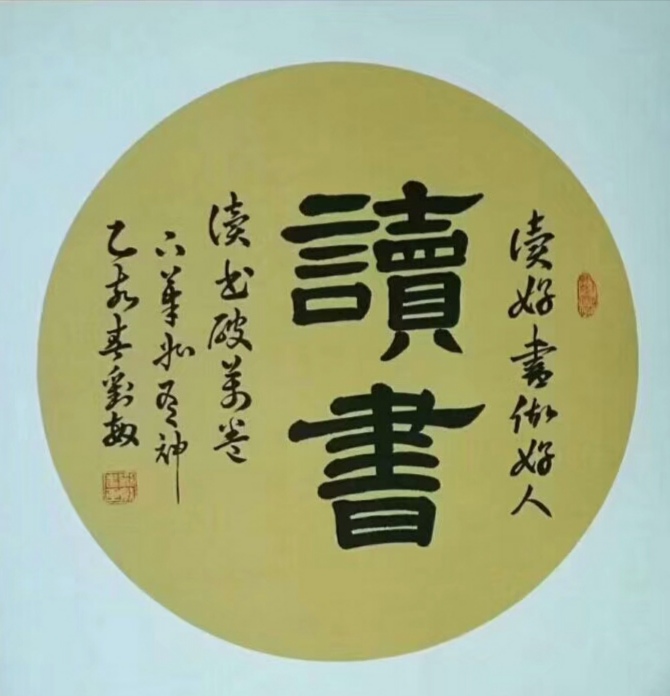 读好書做好人
讀書
读书破萬卷
下筆如有神
乙亥春劉敏